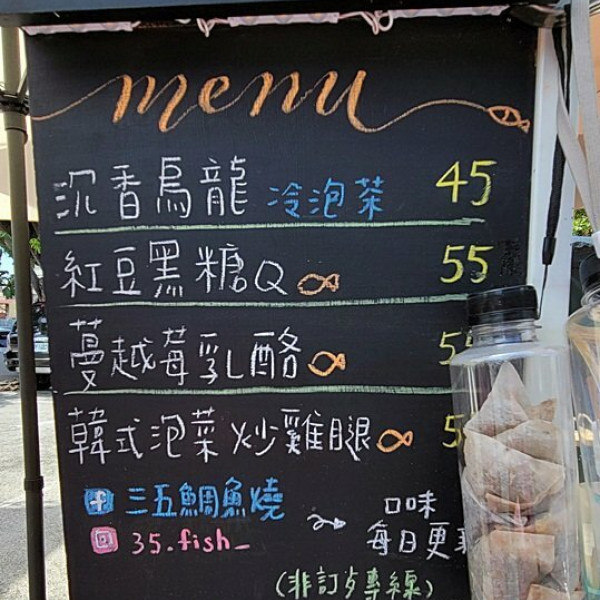 menu
沉香烏龍 冷泡茶 45
紅豆黑糖Q 55
蔓越莓乳酪 5
韓式泡菜炒雞腿 5
三五鯛魚燒
35.fish_
口味
每日更
(非訂位專線)